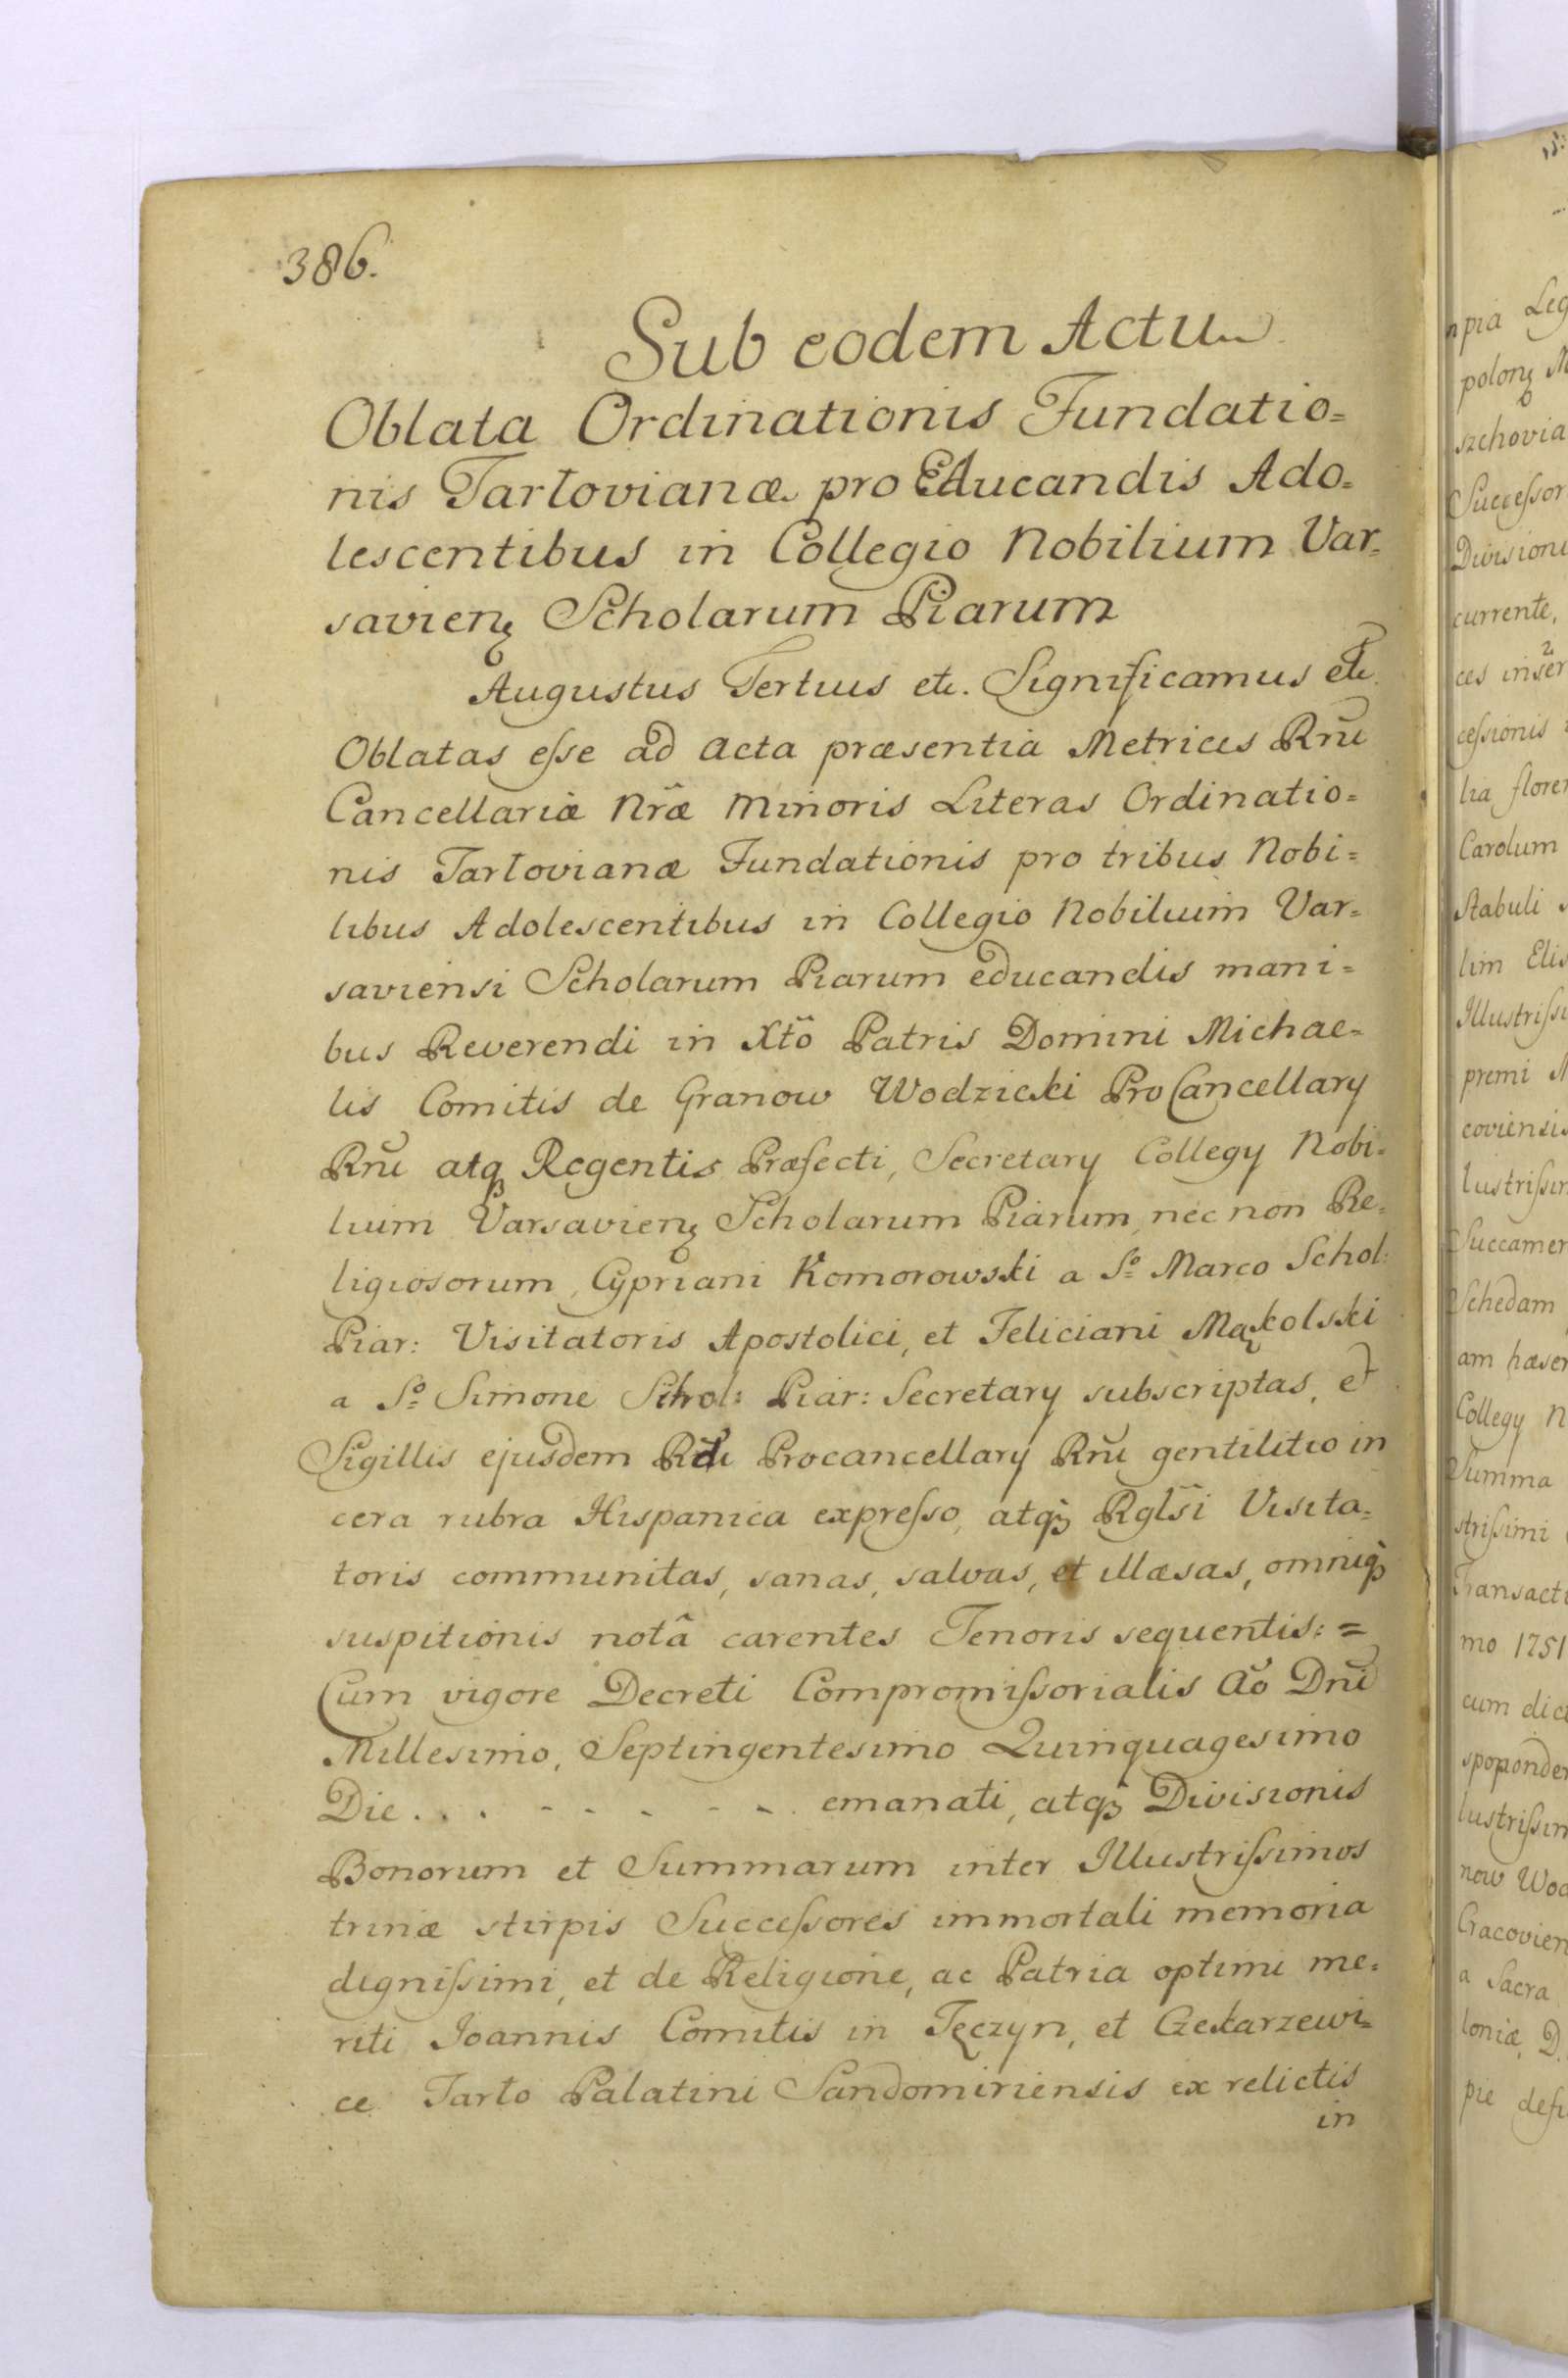 386.
Sub eodem Actu
Oblata Ordinationis Fundatio=
nis Tarłovianæ pro Educandis Ado=
lescentibus in Collegio Nobilium Var=
savienȩ Scholarum Piarum
Augustus Tertius etc. Significamus etc.
Oblatas eſse ad Acta præsentia Metrices Rñi
Cancellariæ Nræ̃ Minoris Literas Ordinatio=
nis Tarłovianæ Fundationis pro tribus Nobi=
libus Adolescentibus in Collegio Nobilium Var=
saviensi Scholarum Piarum educandis mani=
bus Reverendi in Xtõ Patris Domini Michae=
lis Comitis de Granow Wodzicki ProCancellary
Rñi atqꝫ Regentis Præfecti, Secretary Collegy Nobi=
lium Varsavienȩ Scholarum Piarum, nec non Re=
ligiosorum, Cypriani Komorowski a Sº Marco Schol:
Piar: Visitatoris Apostolici, et Feliciani Mąkolski
a Sº Simone Schol: Piar: Secretary subscriptas, et
Sigillis ejusdem Rdi Procancellary Rñi gentilitio in
cera rubra Hispanica expreſso, atqꝫ Rglsĩ Visita=
toris communitas, sanas, salvas, et illæsas, omniqꝫ
suspitionis notâ carentes Tenoris sequentis: =
Cum vigore Decreti Compromiſsorialis Aõ Dñi
Millesimo, Septingentesimo Quinquagesimo
Die . . . - - - - - . emanati, atqꝫ Divisionis
Bonorum et Summarum inter Illustriſsimos
trinæ stirpis Succeſsores immortali memoria
digniſsimi, et de Religione, ac Patria optimi me=
riti Joannis Comitis in Tęczyn, et Czekarzewi=
ce Tarło Palatini Sandomiriensis ex relictis
in
pia Leg
polonȩ M
szchovia
Succeſsor
Divisioni
currente,
ces inser
ceſsionis
lia floren
Carolum
Stabuli
lim Elis
Illustriſsi
premi M
coviensis
lustriſsim
Succamer
Schedam
am hæser
Collegy N
Summa
striſsimi
Transacti
mo 1751
cum dict
sponder
lustriſsim
now Wod
Cracovien
a Sacra
loniæ, D
pie defu